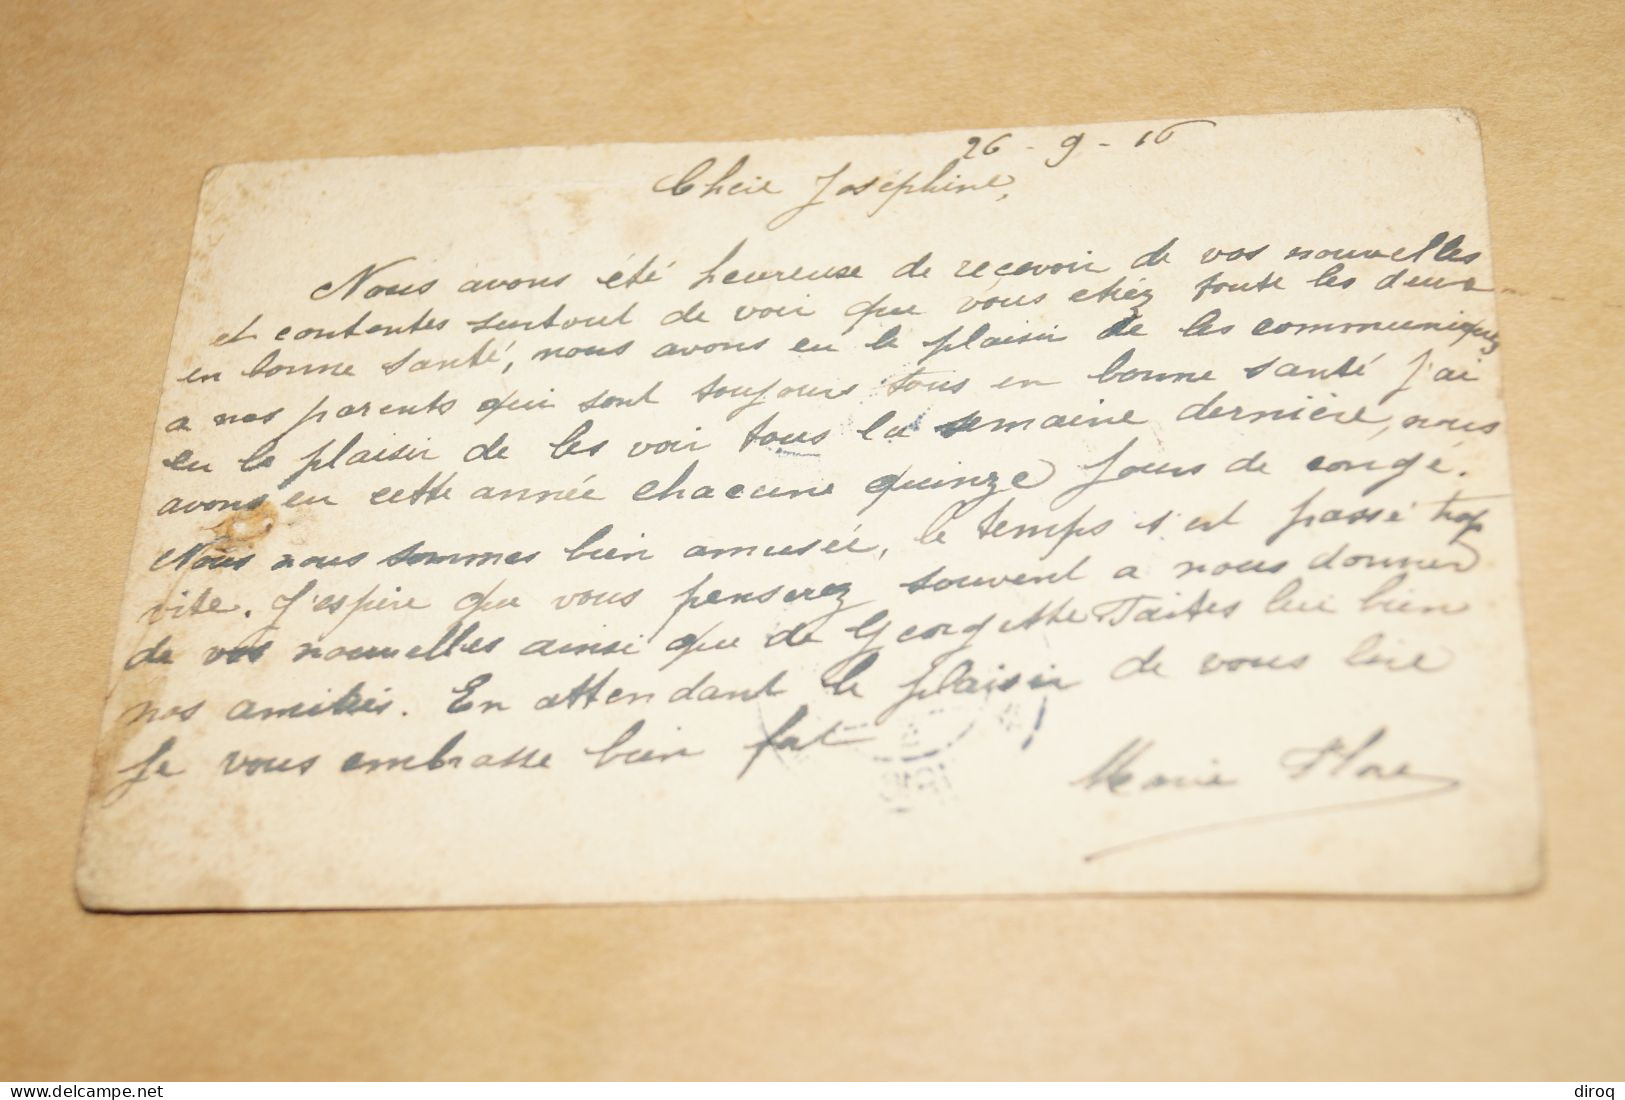 26 - 9 - 16
Cheie Joséphine,
Nous avons été heureuse de recevoir de vos nouvelles
et contentes surtout de voir que vous etiez toute les deux
en bonne santé, nous avons eu le plaisir de les communiquez
a nos parents qui sont toujours tous en bonne santé J'ai
eu le plaisir de les voir tous la semaine dernière, nous
avons eu cette année chacune quinze jours de congé.
Nous nous sommes bien amusée, le temps s'est passé trop
vite. J'espère que vous penserez souvent a nous donner
de vos nouvelles ainsi que de Georgette Faites lui bien
nos amitiés. En attendant le plaisir de vous lire
Je vous embrasse bien fort
Marie Flore
delcampe.net
diroq